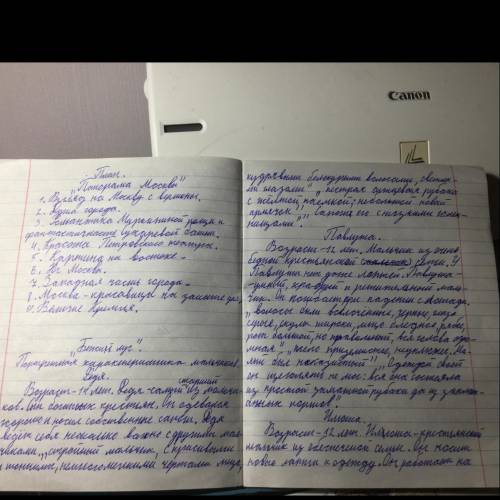 Canon
План.
"Панорама Москвы"
1. Взгляд на Москву с вершины.
2. Душа города.
3. Романтика Мурешиной рощи и
фантастичность Сухаревой башни.
4. Красота Петровского
5. Картина на востоке.
6. Юг Москвы.
7. Западная часть города.
8. Москва - красавица на
9. Величие Кремля.
"Бежин луг".
Портретная характеристика мальчиков.
Федя.
Возраст - 14 лет. Федя самый старший из мальчи-
ков. Он богатых крестьян. Он одевался
хорошо и носил собственные сапоги. Федя
ведёт себя несколько важно с другими маль-
чиками. "стройный мальчик, с красивыми
и тонкими, немного мелкими чертами лица,
кудрявыми белокурыми волосами, светлы-
ми глазами" "пестрая ситцевая рубаха
с желтой каемкой; небольшой новый
армячок." "Сапоги его с низкими голе-
нищами."
Павлуша.
Возраст - 12 лет. Мальчик из очень
бедной крестьянской семьи. У
Павлуши нет даже лаптей. Павлуша
- умный, храбрый и решительный маль-
чик. Он погиб при падении с лошади.
"волосы были всклоченные, черные, глаза
серые, скулы широкие, лицо бледное, рябое,
рот большой, но правильный, вся голова огро-
мная" "тело приземистое, неуклюжее. Ма-
лый был неказистый" "Одеждой своей
он щеголять не мог: вся она состояла
из простой замашной рубахи да из запла-
танных портов".
Ильюша.
Возраст - 12 лет. Илюша - крестьянский
мальчик из обеспеченной семьи. Он носит
новые лапти и одежду. Он работает на